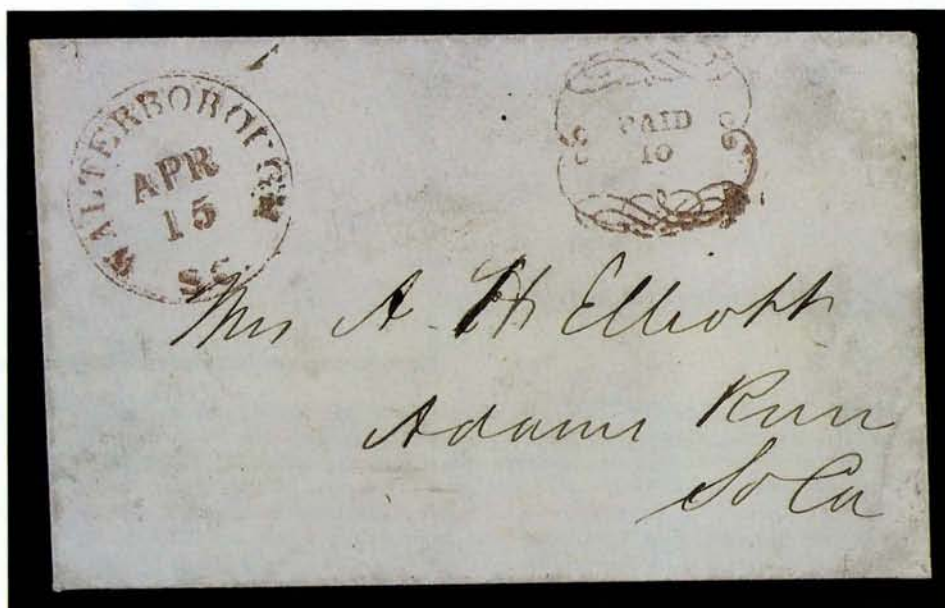 WALTERBOROUGH
APR
15
S.C.
PAID
10
Mrs A H Elliott
Adams Run
So Ca